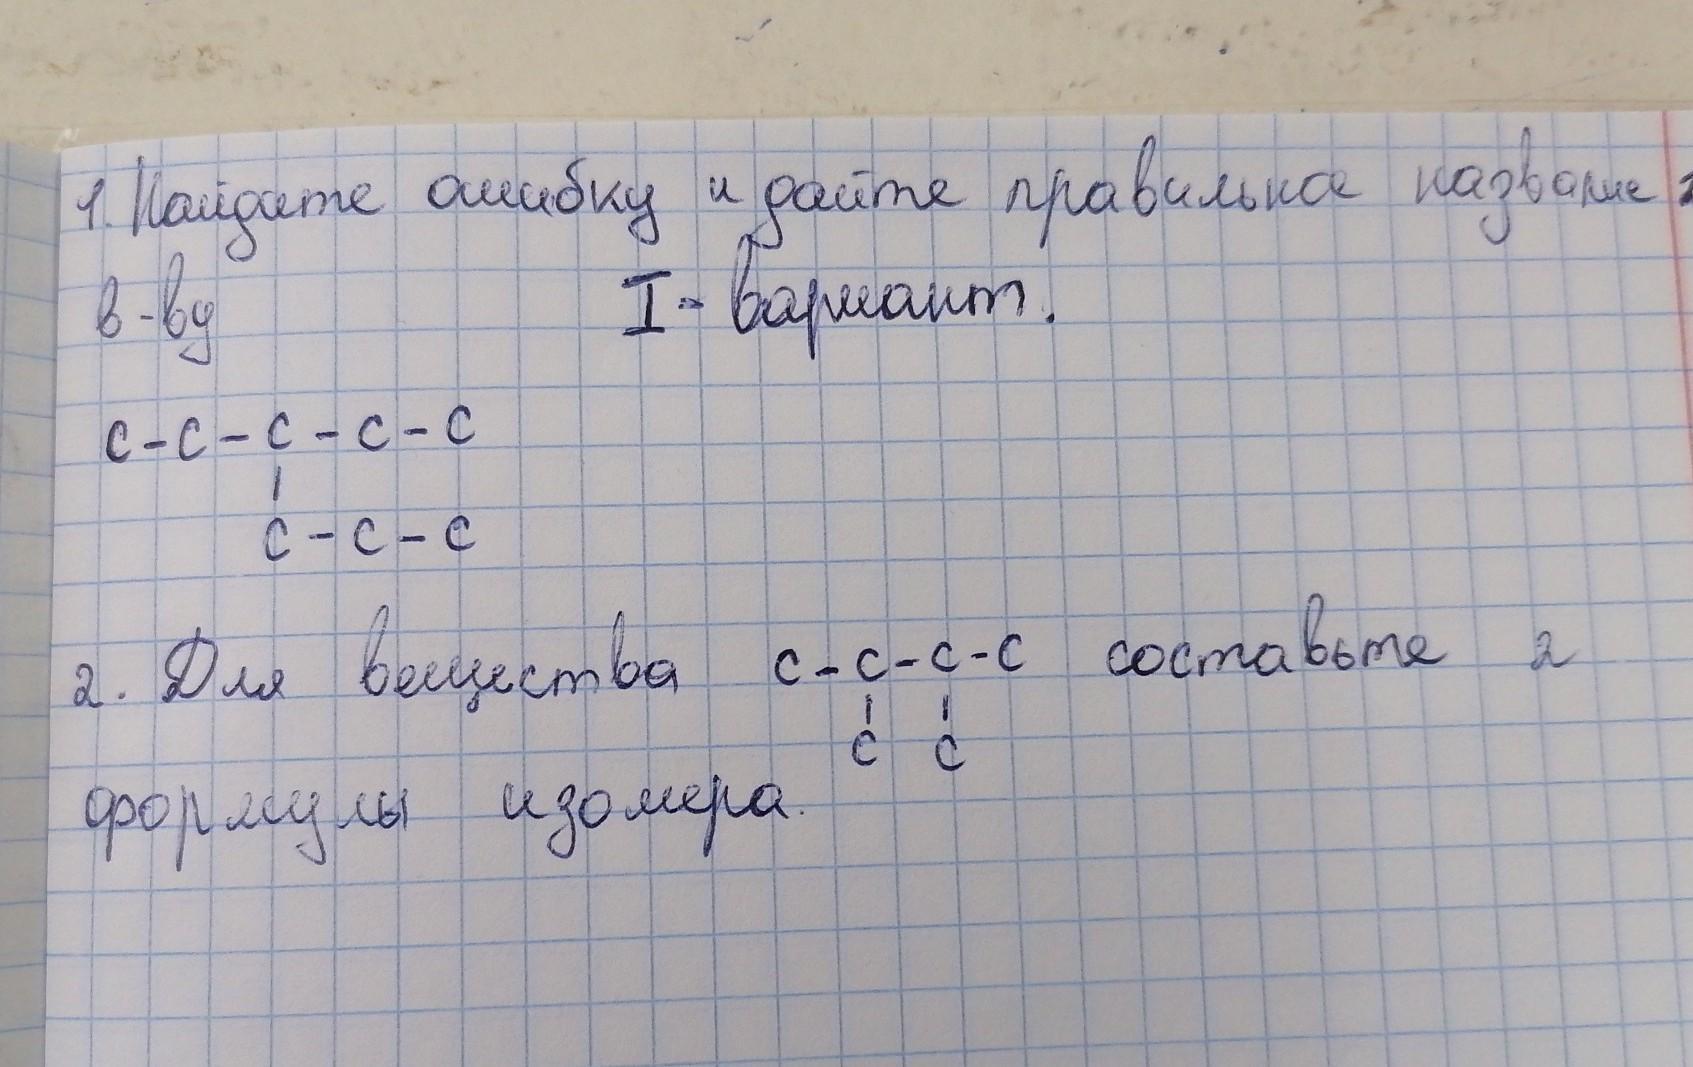 1. Найдите ошибку и дайте правильное название
в-ву I - вариант.
C - C - C - C - C
C - C - C
2. Для вещества C - C - C - C составьте 2
C C
формулы изомера.